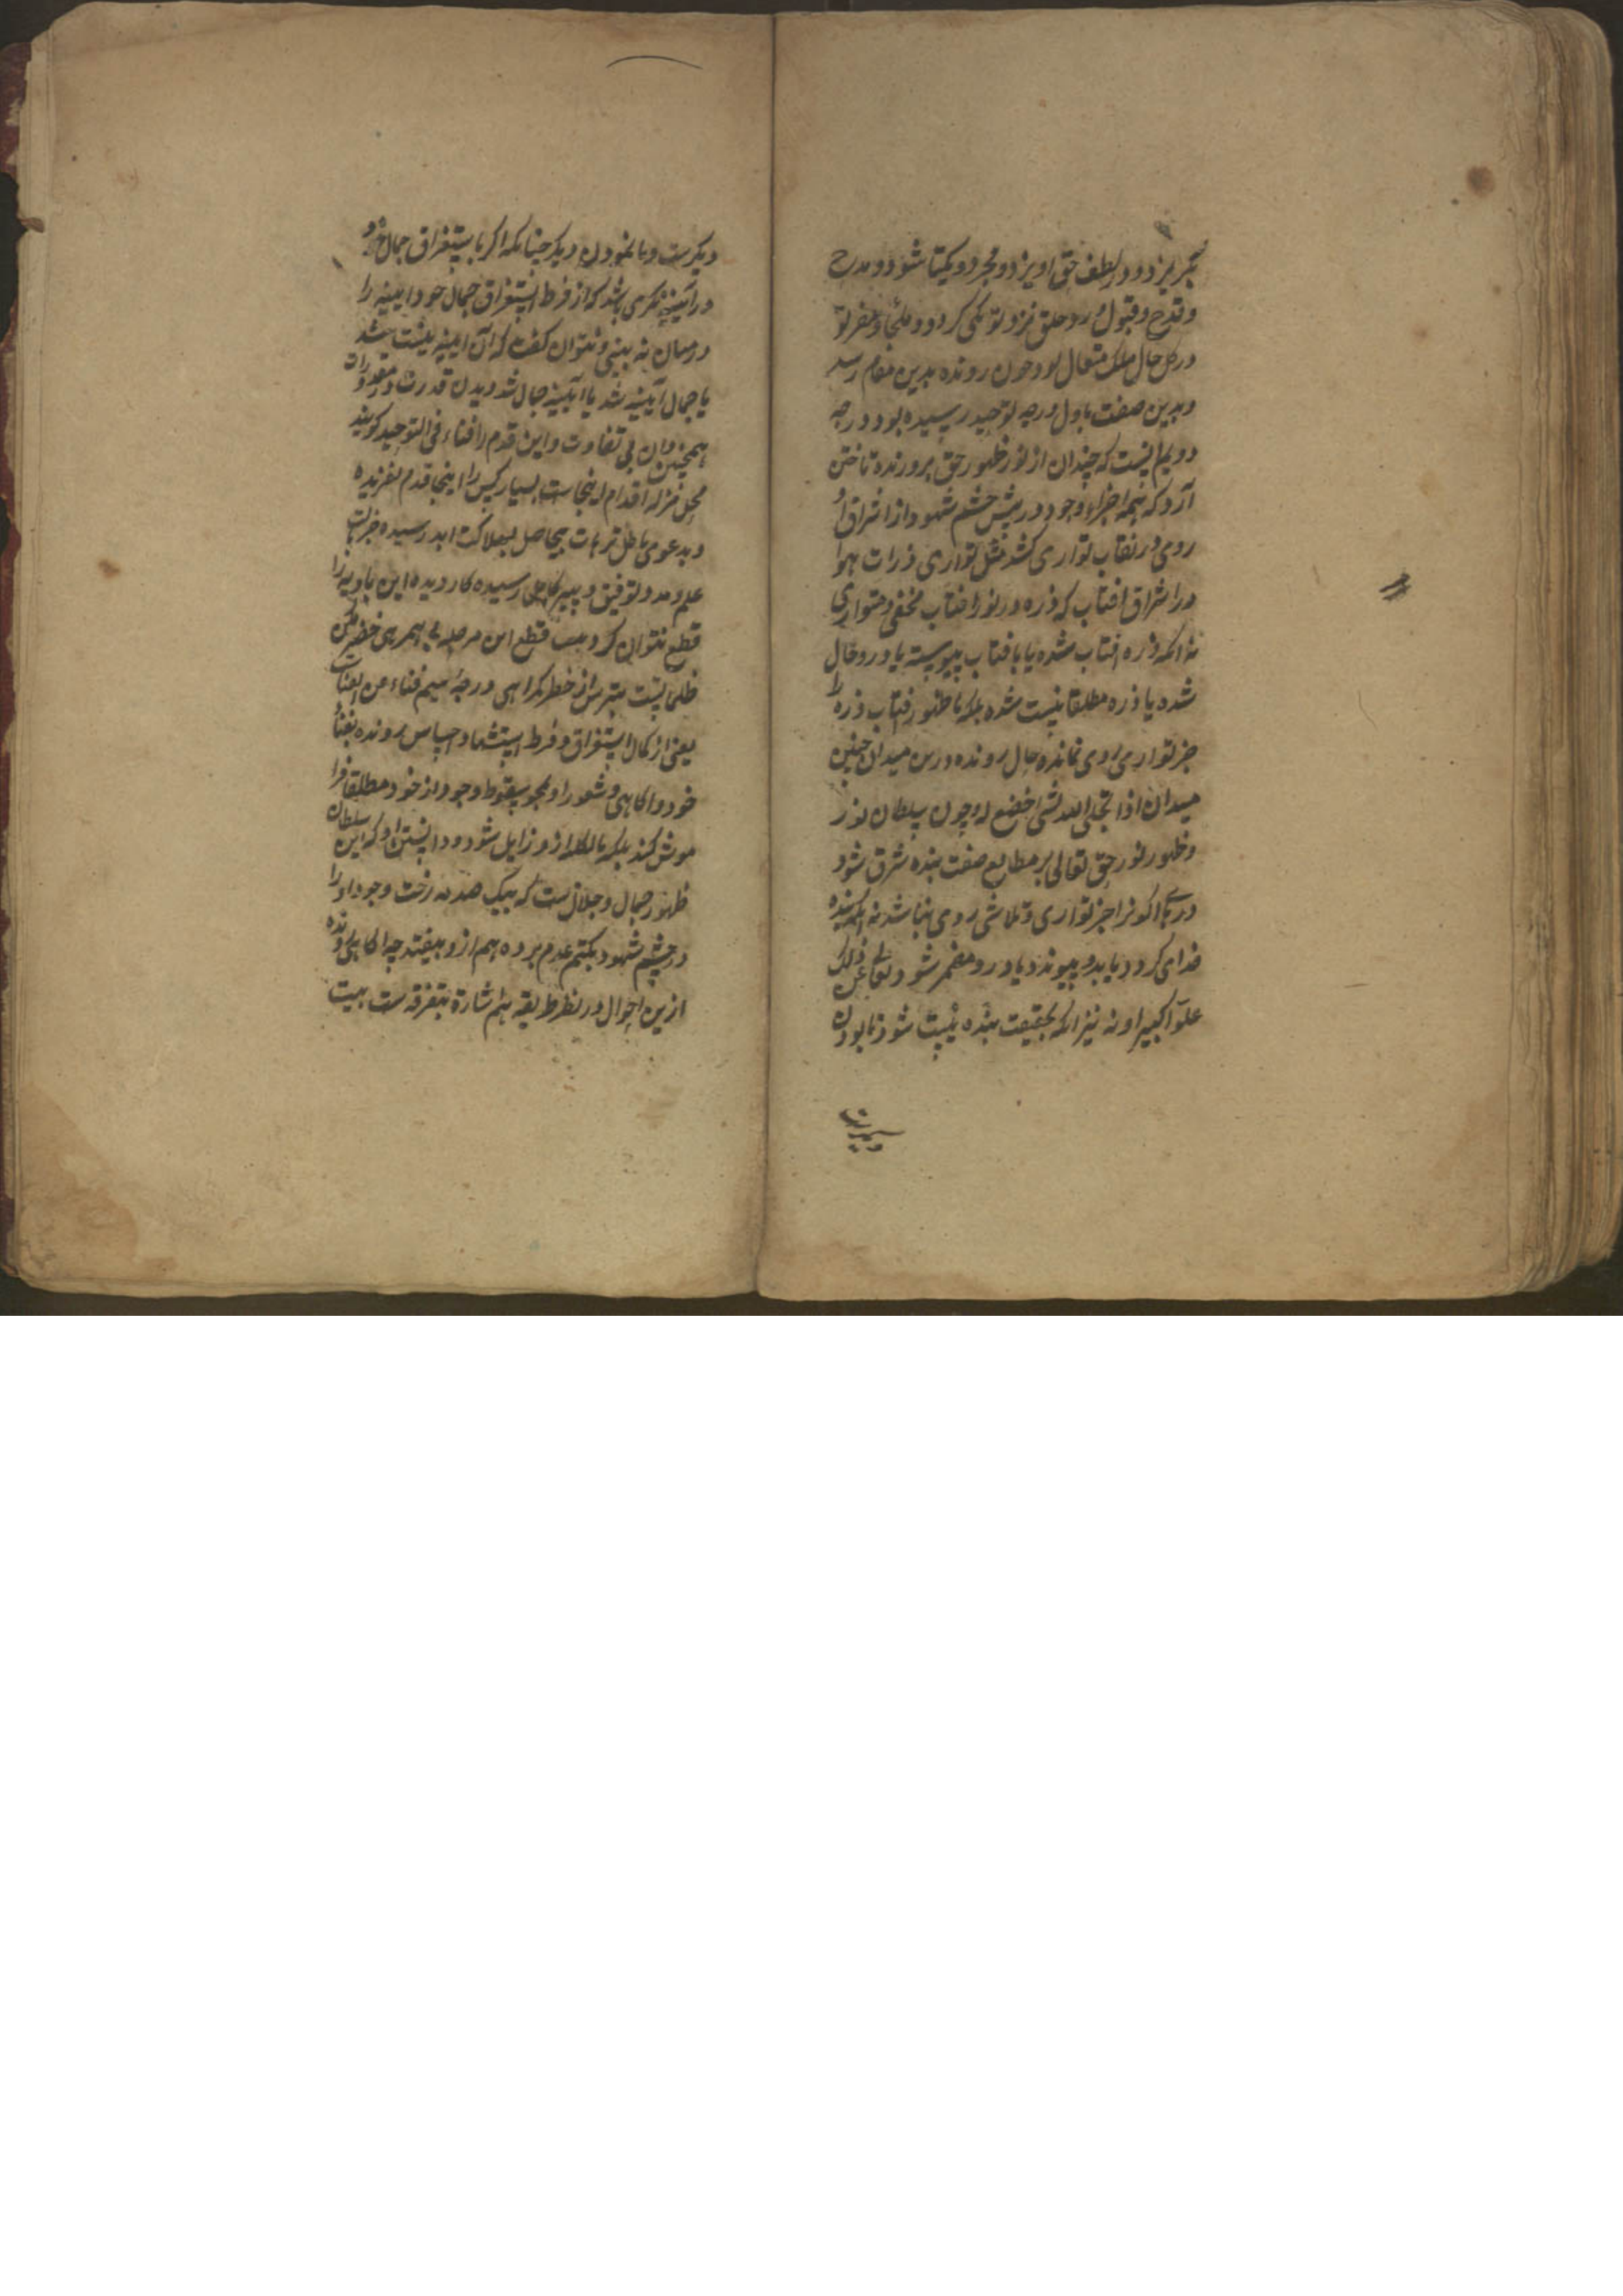 بگریزد و در لطف حق اویزد و مجرد و یکتا شود و مدح
و قدح و قبول و رد خلق نزد تو یکی کردد و ملجا و مفر تو
در کل حال ملک متعال بود چون رونده بدین مقام رسد
و بدین صفت باول درجه توحید رسیده بود درجه
دویم انست که چندان از نور ظهور حق بر رونده تاختن
آرد که همه اجزاء وجود در پیش چشم شهود از اشراق او
روی در نقاب تواری کشد مثل تواری ذرات هوا
در اشراق افتاب که ذره در نور افتاب مخفی و متواری
نه انکه ذره افتاب شده یا بافتاب پیوسته یا درو حال
شده یا ذره مطلقا نیست شده بلکه با ظهور افتاب ذره را
جز تواری روی نمانده حال رونده درین میدان چنین
میدان اذا تجلی الله لشی اخضع له چون سلطان نور
و ظهور نور حق تعالی بر مطالع صفت بنده مشرق شود
در اکوان را جز تواری و تلاشی روی نباشد نه انکه بنده
خدا می کردد یا بدو پیوندد یا درو مضمر شود تعالی عن ذلک
علوا کبیرا و نه نیز انکه بحقیقت بنده نیست شود نابودن
دیکرست
دیکرست و نانمودن دیکر چنانکه اکر باستغراق جمال خود
در آیینه نکری باشد که از فرط استغراق جمال خود ایینه را
در میان نه بینی و نتوان کفت که آن ایینه نیست شد
یا جمال آیینه شد یا آیینه جمال شد دیدن قدرت در مقدورات
همچنین دان بی تفاوت و این قدم را فناء فی التوحید کویند
محل مزله اقدام اینجاست بسیار کس را اینجا قدم لغزیده
و بدعوی باطل ترهات بیحاصل بهلاکت ابد رسیده جز بنور
علم و مدد توفیق و پیر کامل رسیده کار دیده این بادیه را
قطع نتوان کرد بیت قطع این مرحله بی همرهی خضر مکن
ظلماتست بترس از خطر کمراهی درجه سیم فناء من الفنات
یعنی از کمال استغراق و فرط استشهاد احساس رونده بفناء
خود و اکاهی و شعور او محو سقوط وجود از خود مطلقا فرا
موش کند بلکه بالکل ازو زایل شود و دانستن او که این سلطان
ظهور جمال و جلال است که بیک صدمه رخت وجود او را
در چشم شهود بکتم عدم برده هم ازو بیفتد چه اکاهی رونده
ازین احوال در نظر طریقه هم اشارة بتفرقه ست بیت